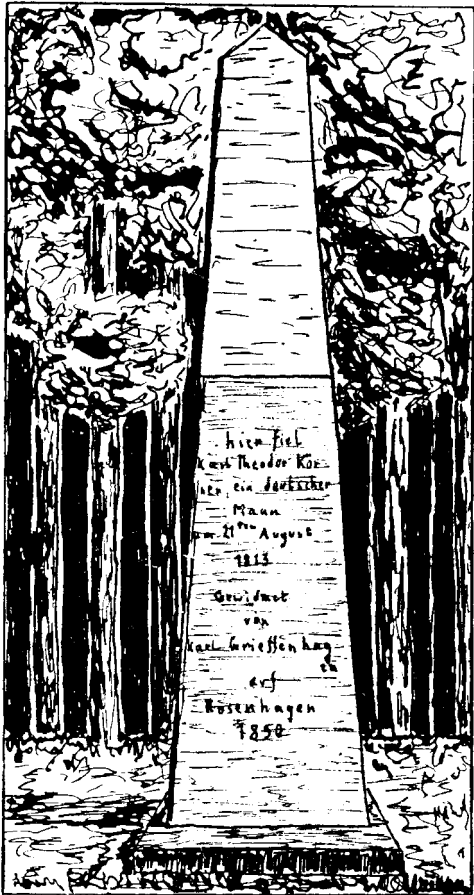 hier fiel
Karl Theodor Kör-
ner, ein deutscher
Mann
am 21ten August
1813
Gewidmet
von
Karl Grieffenhag
en
auf
Rosenhagen
1850